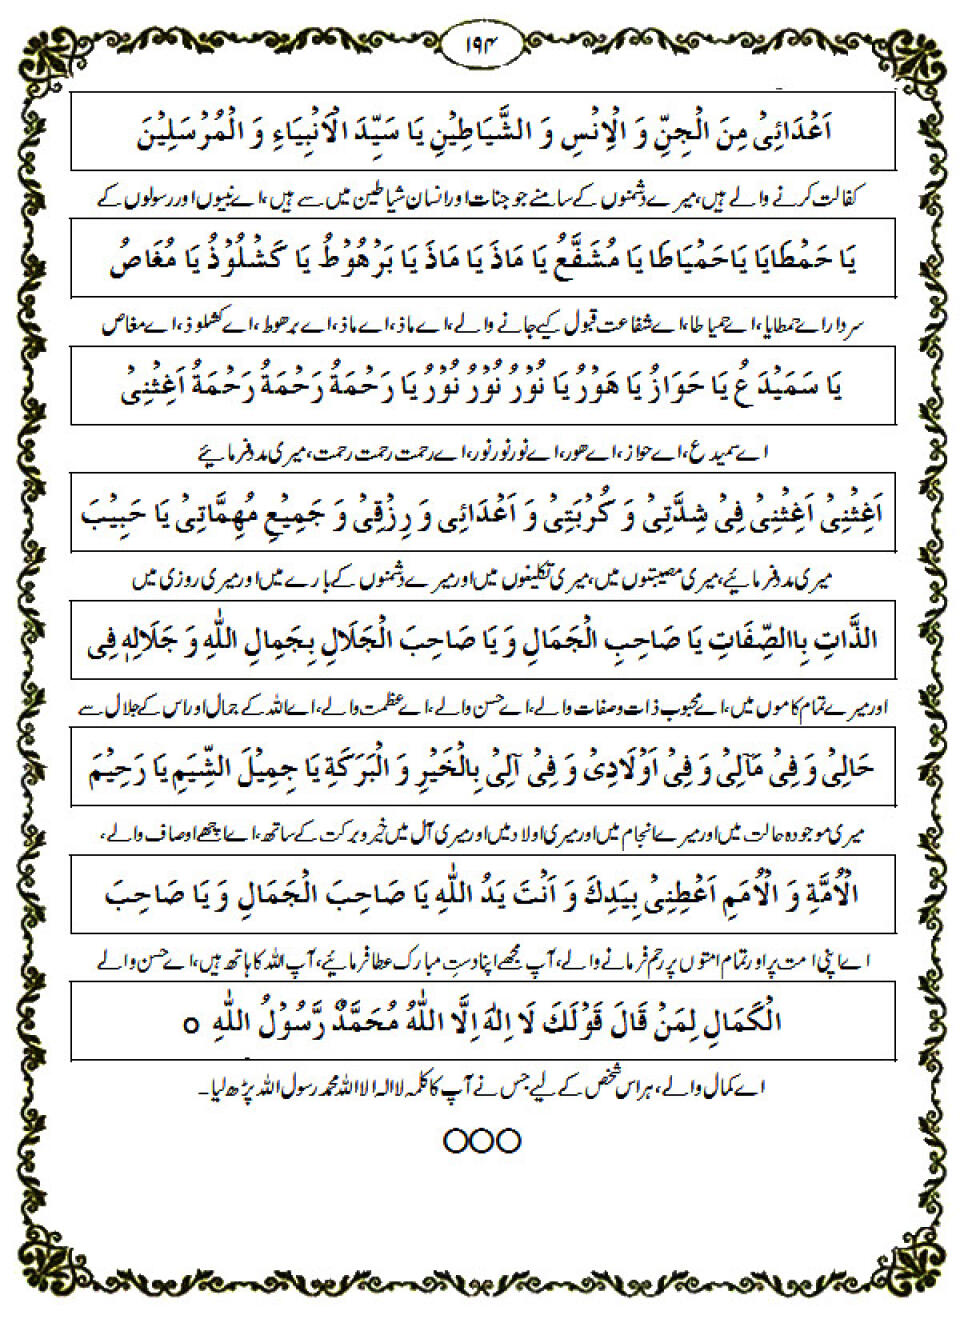 ۱۹۴
اَعْدَائِیْ مِنَ الْجِنِّ وَ الْاِنْسِ وَ الشَّیَاطِیْنِ یَا سَیِّدَ الْاَنْبِیَاءِ وَ الْمُرْسَلِیْنَ
کفالت کرنے والے ہیں، میرے دشمنوں کے سامنے جو جنات اور انسان شیاطین میں سے ہیں، اے نبیوں اور رسولوں کے
یَا حَمْطَایَا یَاحَمْیَاطَا یَا مُشَفَّعُ یَا مَاذَ یَا مَاذَ یَا بَرْهُوْطُ یَا کَشْلُوْذُ یَا مُغَاصُ
سردار اے حمطایا، اے حمیاطا، اے شفاعت قبول کیے جانے والے، اے ماذ، اے ماذ، اے برھوط، اے کشلوذ، اے مغاص
یَا سَمَیْدَعُ یَا حَوَازُ یَا هَوْرُ یَا نُوْرُ نُوْرُ نُوْرُ یَا رَحْمَةُ رَحْمَةُ رَحْمَةُ اَغِثْنِیْ
اے سمیدع، اے حواز، اے ھور، اے نور نور نور، اے رحمت رحمت رحمت، میری مدد فرمائیے
اَغِثْنِیْ اَغِثْنِیْ فِیْ شِدَّتِیْ وَ کُرْبَتِیْ وَ اَعْدَائِی وَ رِزْقِیْ وَ جَمِیْعِ مُهِمَّاتِیْ یَا حَبِیْبَ
میری مدد فرمائیے، میری مصیبتوں میں، میری تکلیفوں میں اور میرے دشمنوں کے بارے میں اور میری روزی میں
الذَّاتِ بِاالصِّفَاتِ یَا صَاحِبِ الْجَمَالِ وَ یَا صَاحِبَ الْجَلَالِ بِجَمِالِ اللّٰهِ وَ جَلَالِهٖ فِی
اور میرے تمام کاموں میں، اے محبوب ذات وصفات والے، اے حسن والے، اے عظمت والے، اے اللہ کے جمال اور اس کے جلال سے
حَالِیْ وَ فِیْ مَآلِیْ وَ فِیْ اَوْلَادِیْ وَ فِیْ آلِیْ بِالْخَیْرِ وَ الْبَرَکَةِ یَا جِمِیْلَ الشِّیَمِ یَا رَحِیْمَ
میری موجودہ حالت میں اور میرے انجام میں اور میری اولاد میں اور میری آل میں خیر و برکت کے ساتھ، اے اچھے اوصاف والے،
الْاُمَّةِ وَ الْاُمَمِ اَعْطِنِیْ بِیَدِكَ وَ اَنْتَ یَدُ اللّٰهِ یَا صَاحِبَ الْجَمَالِ وَ یَا صَاحِبَ
اے اپنی امت پر اور تمام امتوں پر رحم فرمانے والے، آپ مجھے اپنا دستِ مبارک عطا فرمائیے، آپ اللہ کا ہاتھ ہیں، اے حسن والے
الْکَمَالِ لِمَنْ قَالَ قَوْلَكَ لَا اِلٰهَ اِلَّا اللّٰهُ مُحَمَّدٌ رَّسُوْلُ اللّٰهِ ○
اے کمال والے، ہر اس شخص کے لیے جس نے آپ کا کلمہ لا الہ الا اللہ محمد رسول اللہ پڑھ لیا۔
○○○